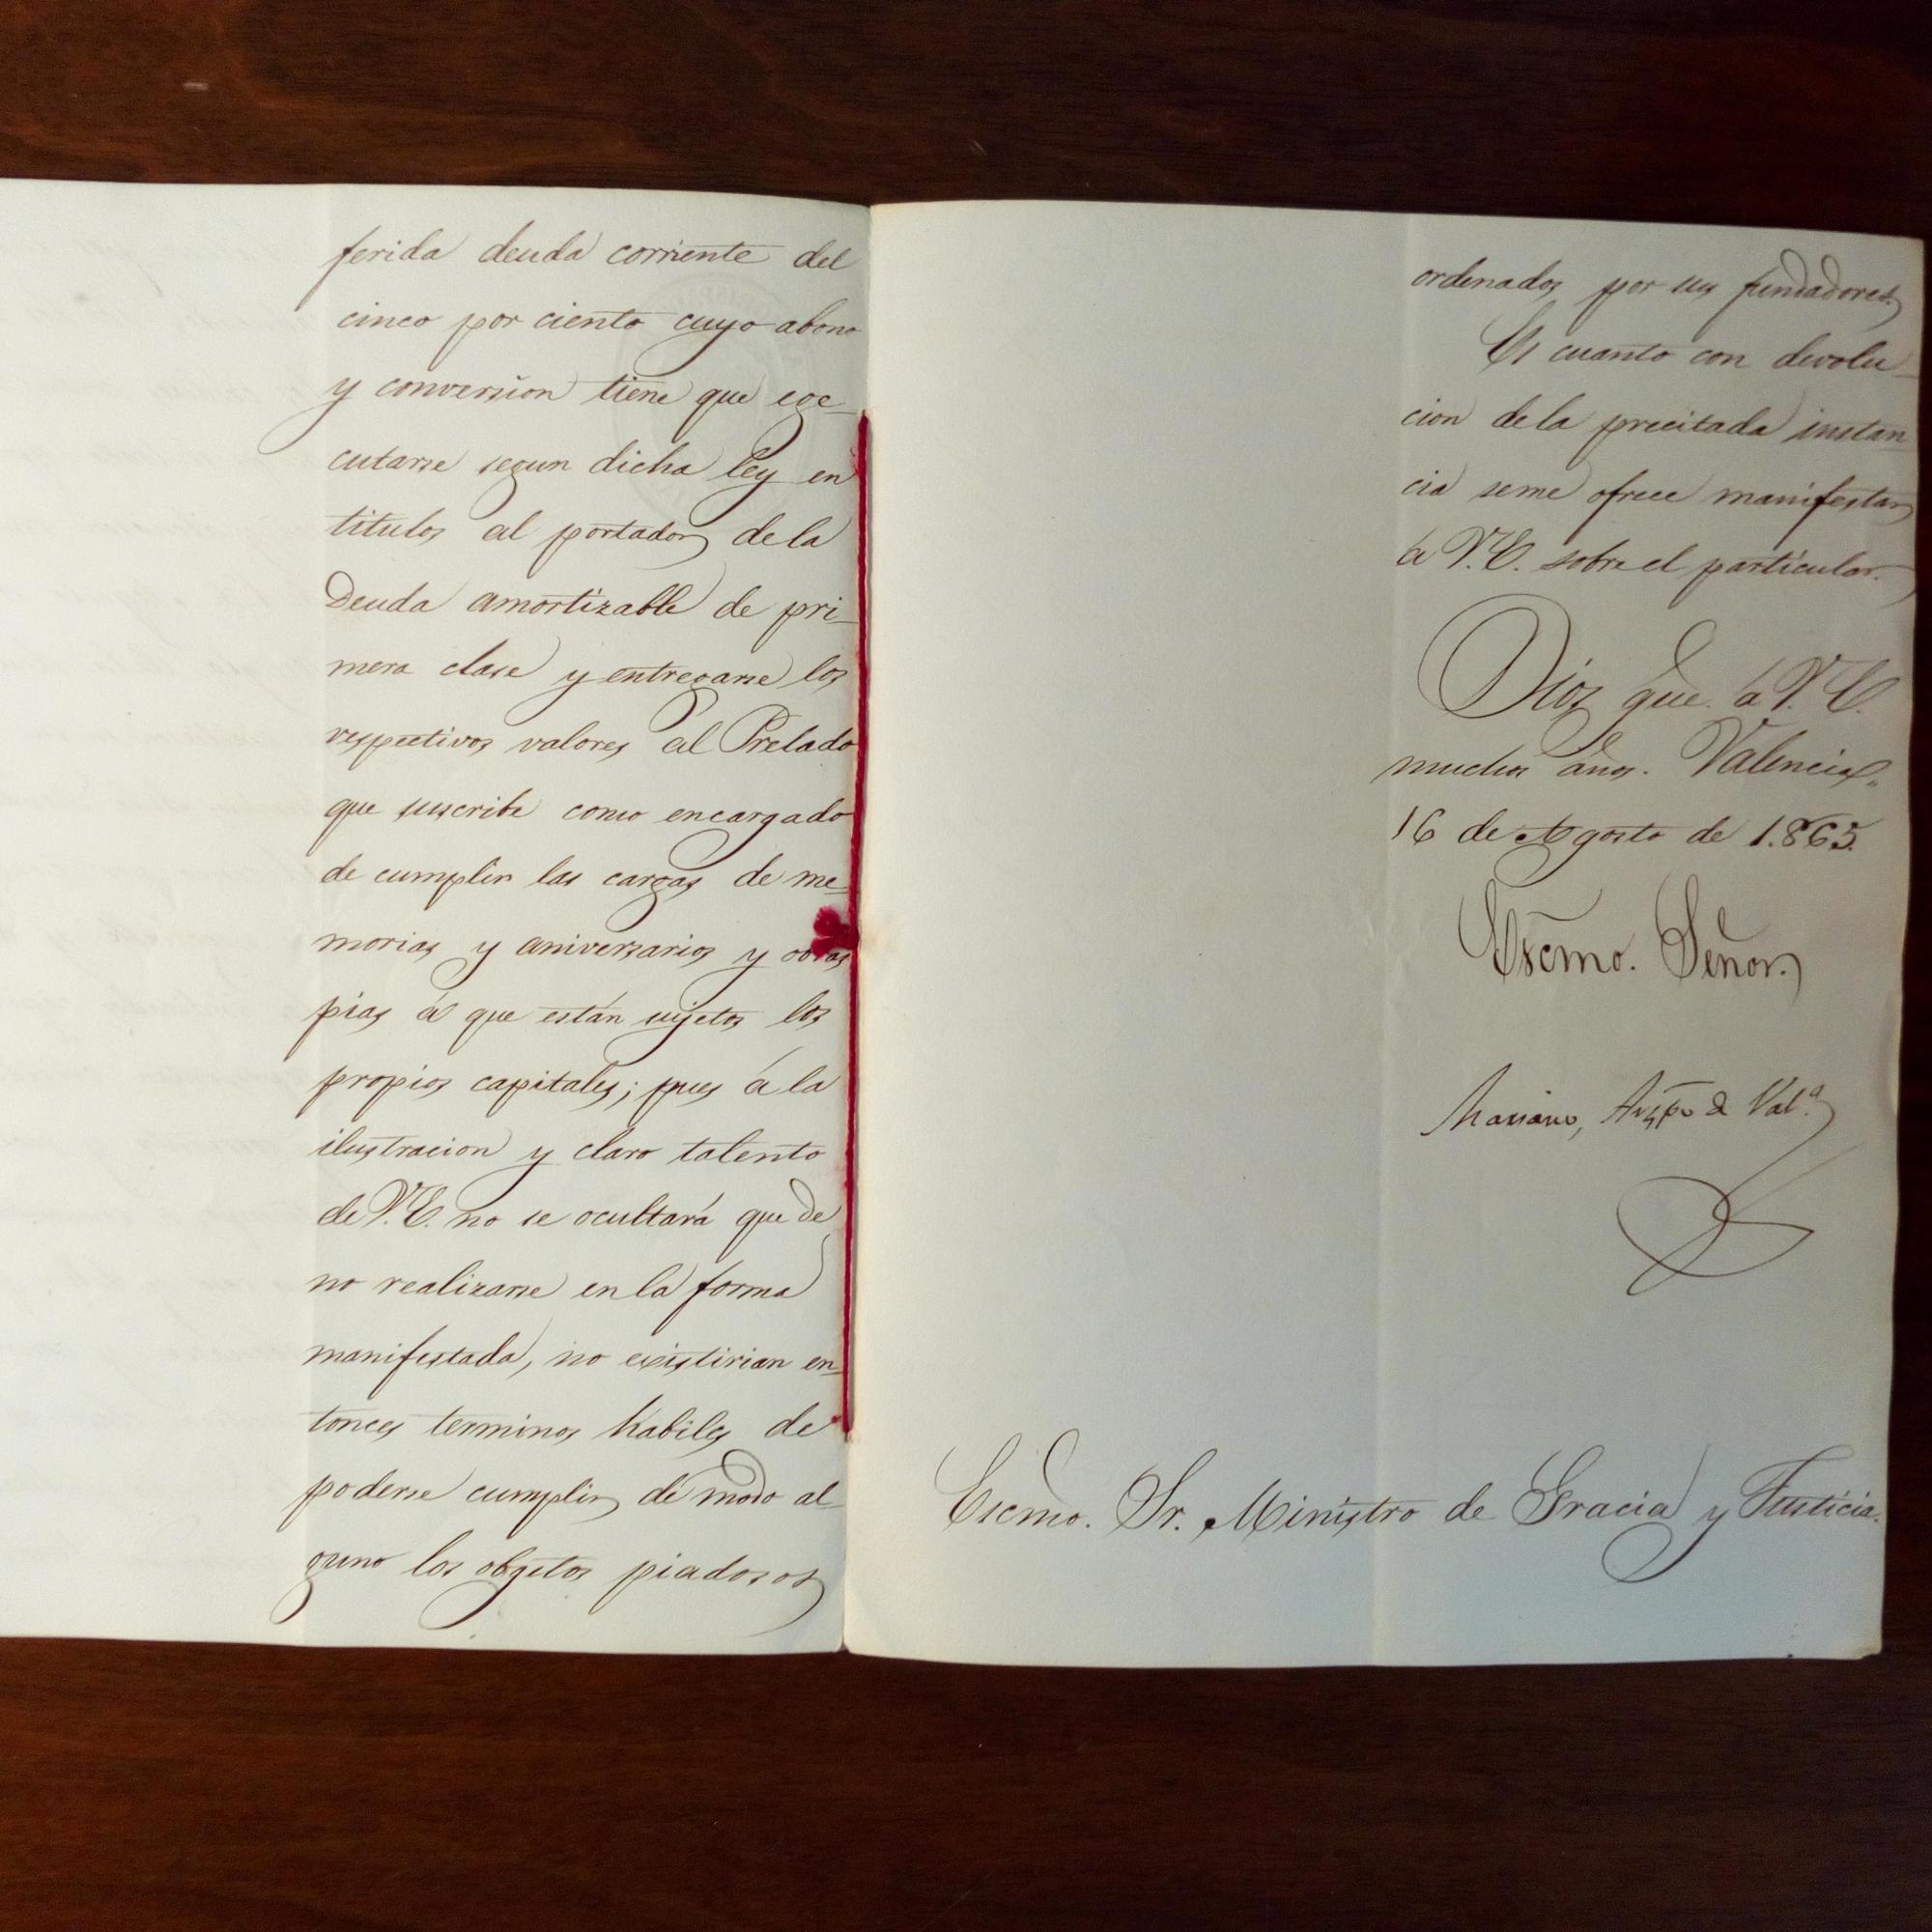 ferida deuda corriente del
cinco por ciento cuyo abono
y conversion tiene que ege-
cutarse segun dicha ley en
titulos al portador de la
Deuda amortizable de pri-
mera clase y entregarse los
respectivos valores al Prelado
que suscribe como encargado
de cumplir las cargas de me-
morias y aniversarios y obras
pias á que están sujetos los
propios capitales; pues á la
ilustracion y claro talento
de V.E. no se ocultará que de
no realizarse en la forma
manifestada, no existirian en-
tonces terminos habiles de
poderse cumplir de modo al-
guno los objetos piadosos
ordenados por sus fundadores.
Es cuanto con devolu-
cion de la precitada instan-
cia seme ofrece manifestar
á V.E. sobre el particular.
Dios gue. á V.E.
muchos años. Valencia
16 de Agosto de 1.865.
Escmo. Señor.
Mariano, Arzpo de Valª
Escmo. Sr. Ministro de Gracia y Justicia.